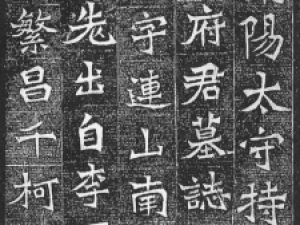 陽太守持
府君墓誌
字連山南
先出自李
繁昌千柯